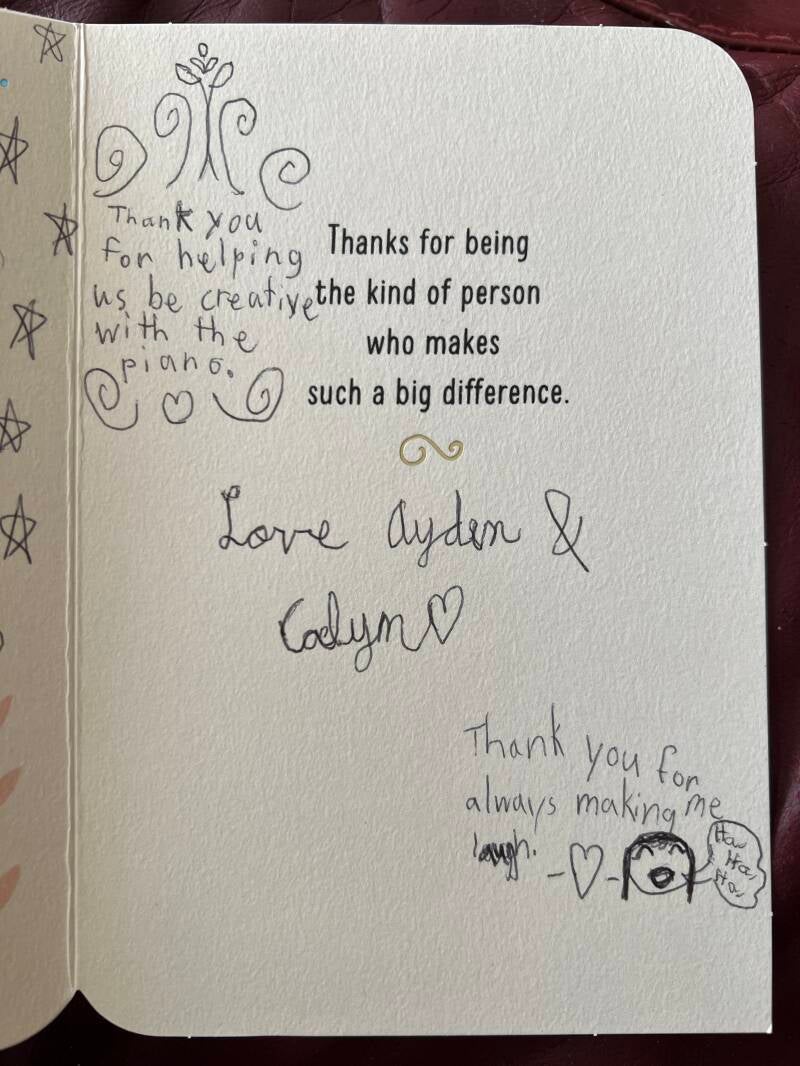 Thank you
for helping
us be creative
with the
piano.
Thanks for being
the kind of person
who makes
such a big difference.
Love Ayden &
Thank you for
always making me
laugh.
Ha,
Ha,
Ha,